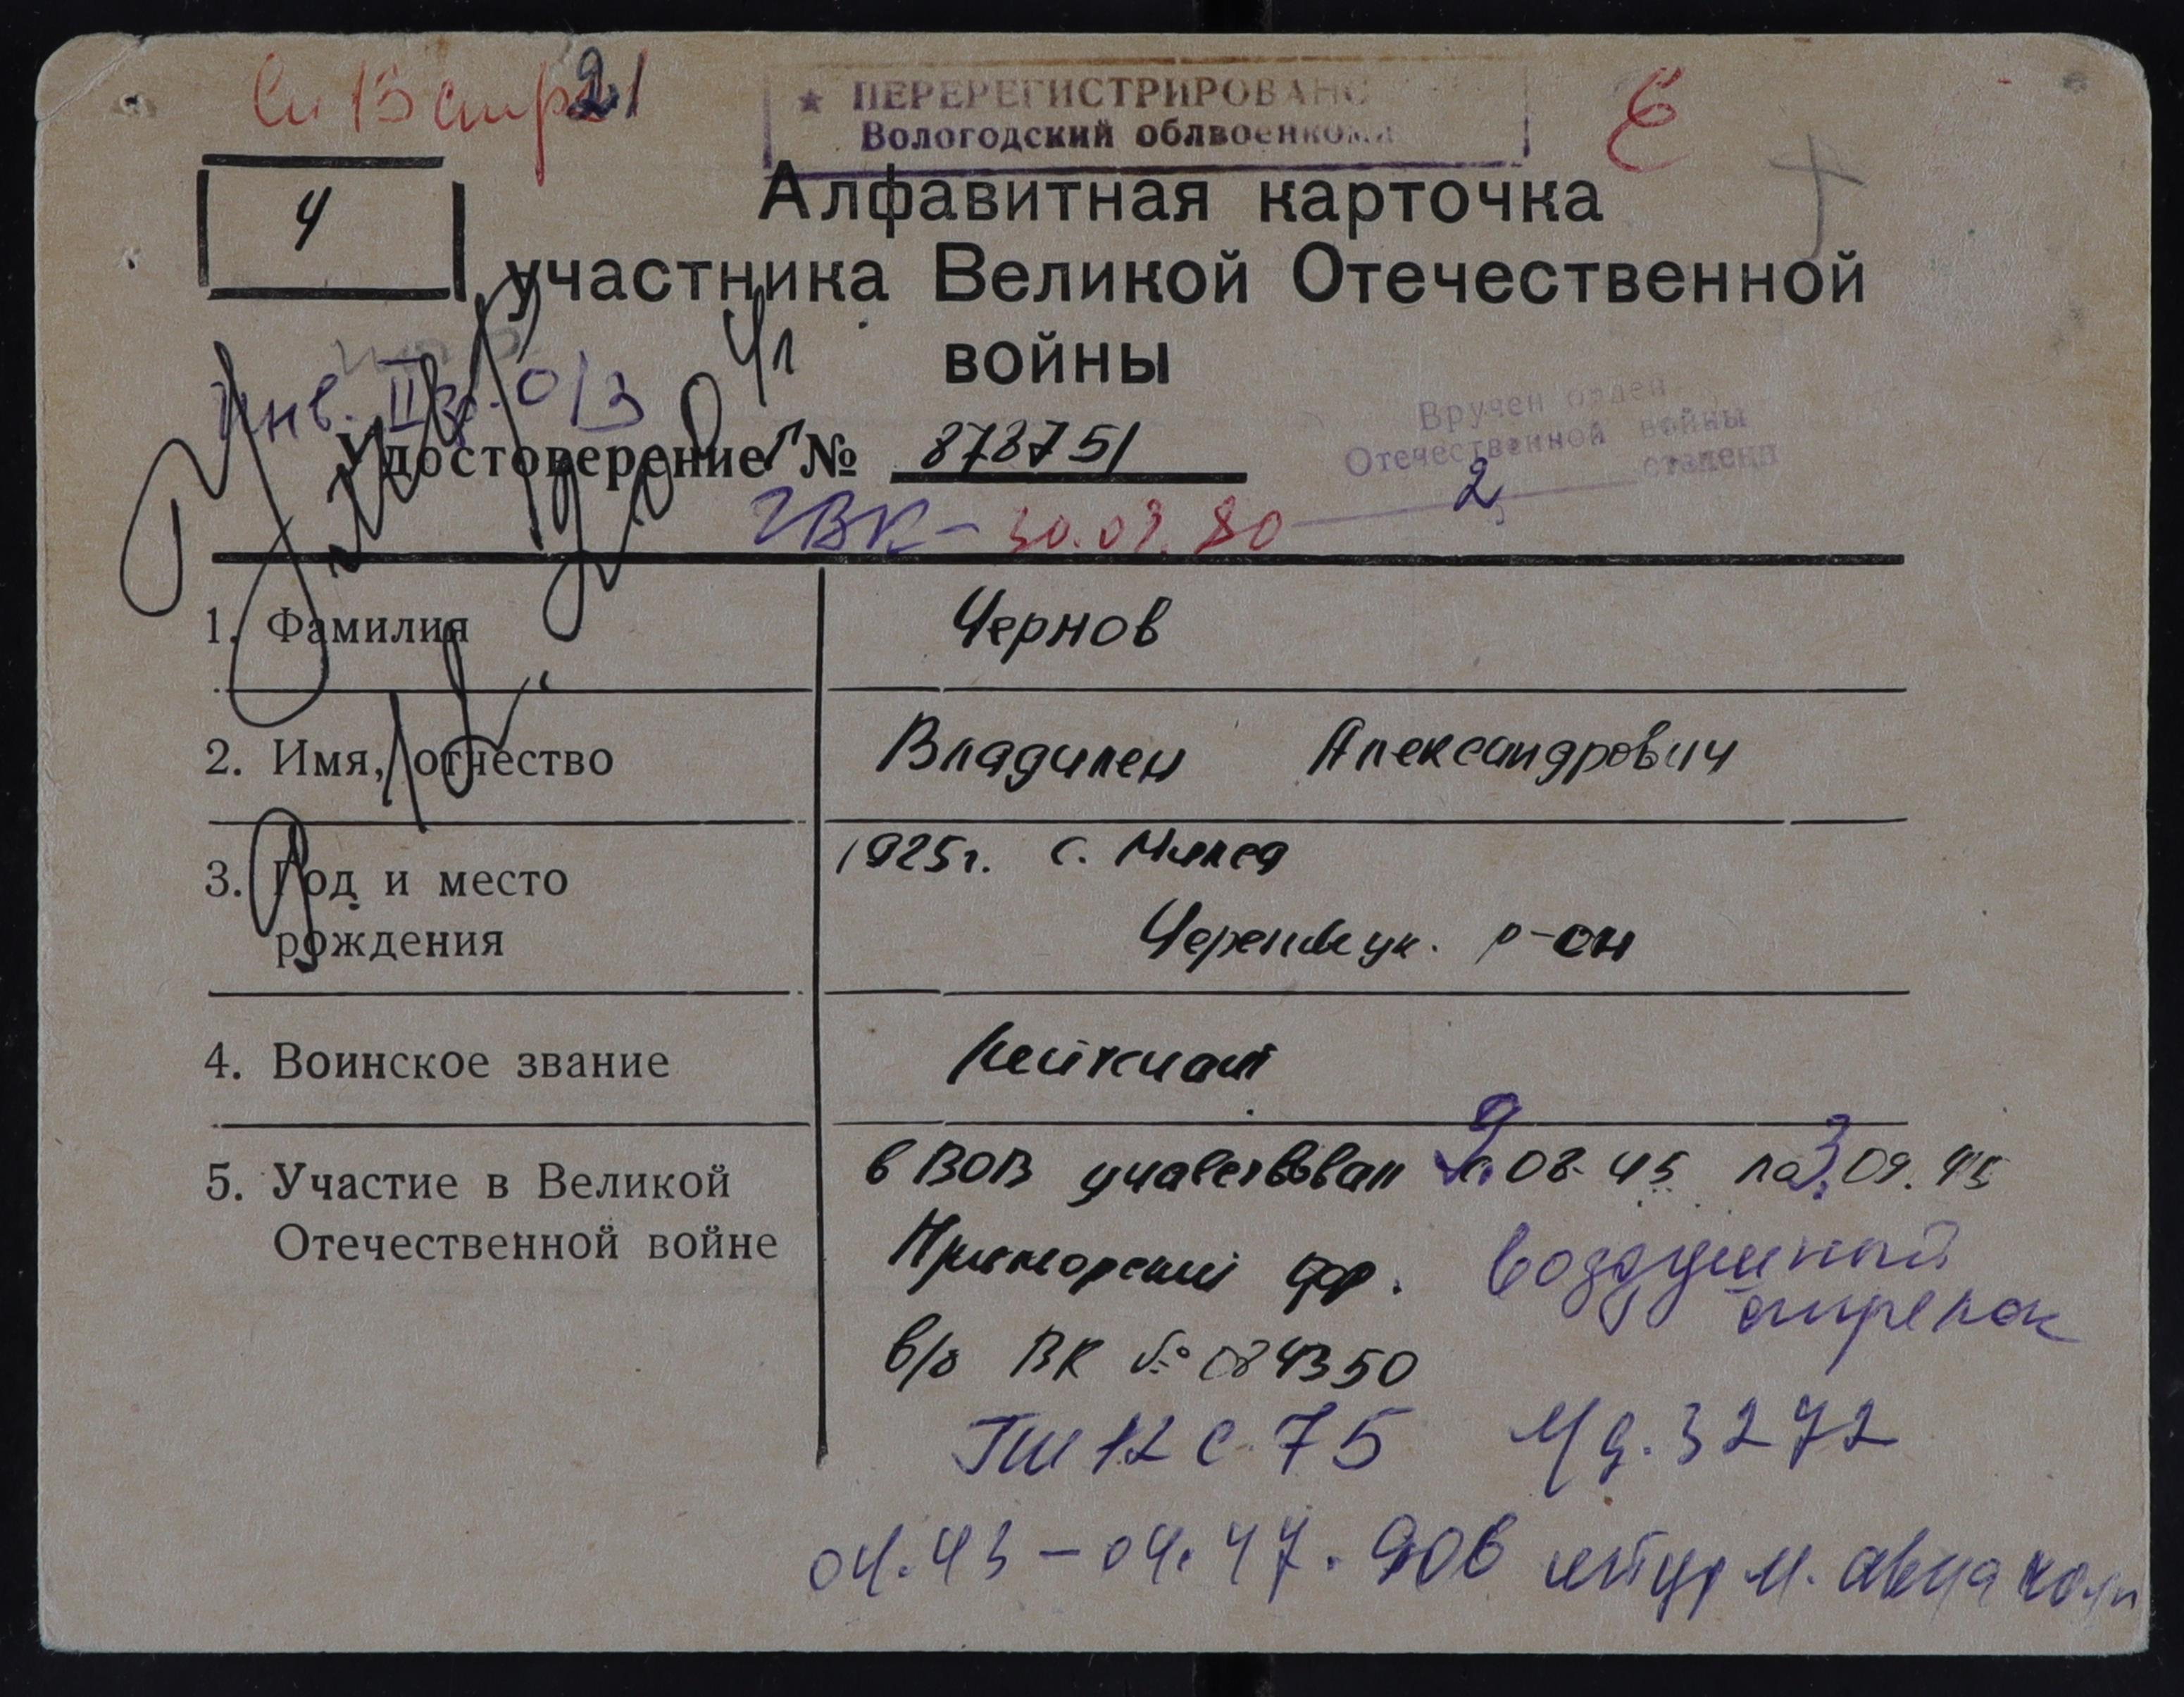 Сп 13 стр 21
★ ПЕРЕРЕГИСТРИРОВАНО
Вологодский облвоенкома
Ч
Алфавитная карточка
участника Великой Отечественной
войны
Инв. II гр. О/З
Удостоверение Г № 878751
Вручен орден
Отечественной войны
2 степени
ГВК – 30.03.80
1. Фамилия
Чернов
2. Имя, отчество
Владилен Александрович
3. Год и место
рождения
1925г. с. Мякса
Череповцк. р-он
4. Воинское звание
лейтенант
5. Участие в Великой
Отечественной войне
в ВОВ участвовал 9.08.45 по 3.09.45
Приморский фр. воздушный
стрелок
в/б ВК № 084350
ГШ 12 с. 75 Ид. 3272
04.43 – 04.47. 906 штур м. авиа полк